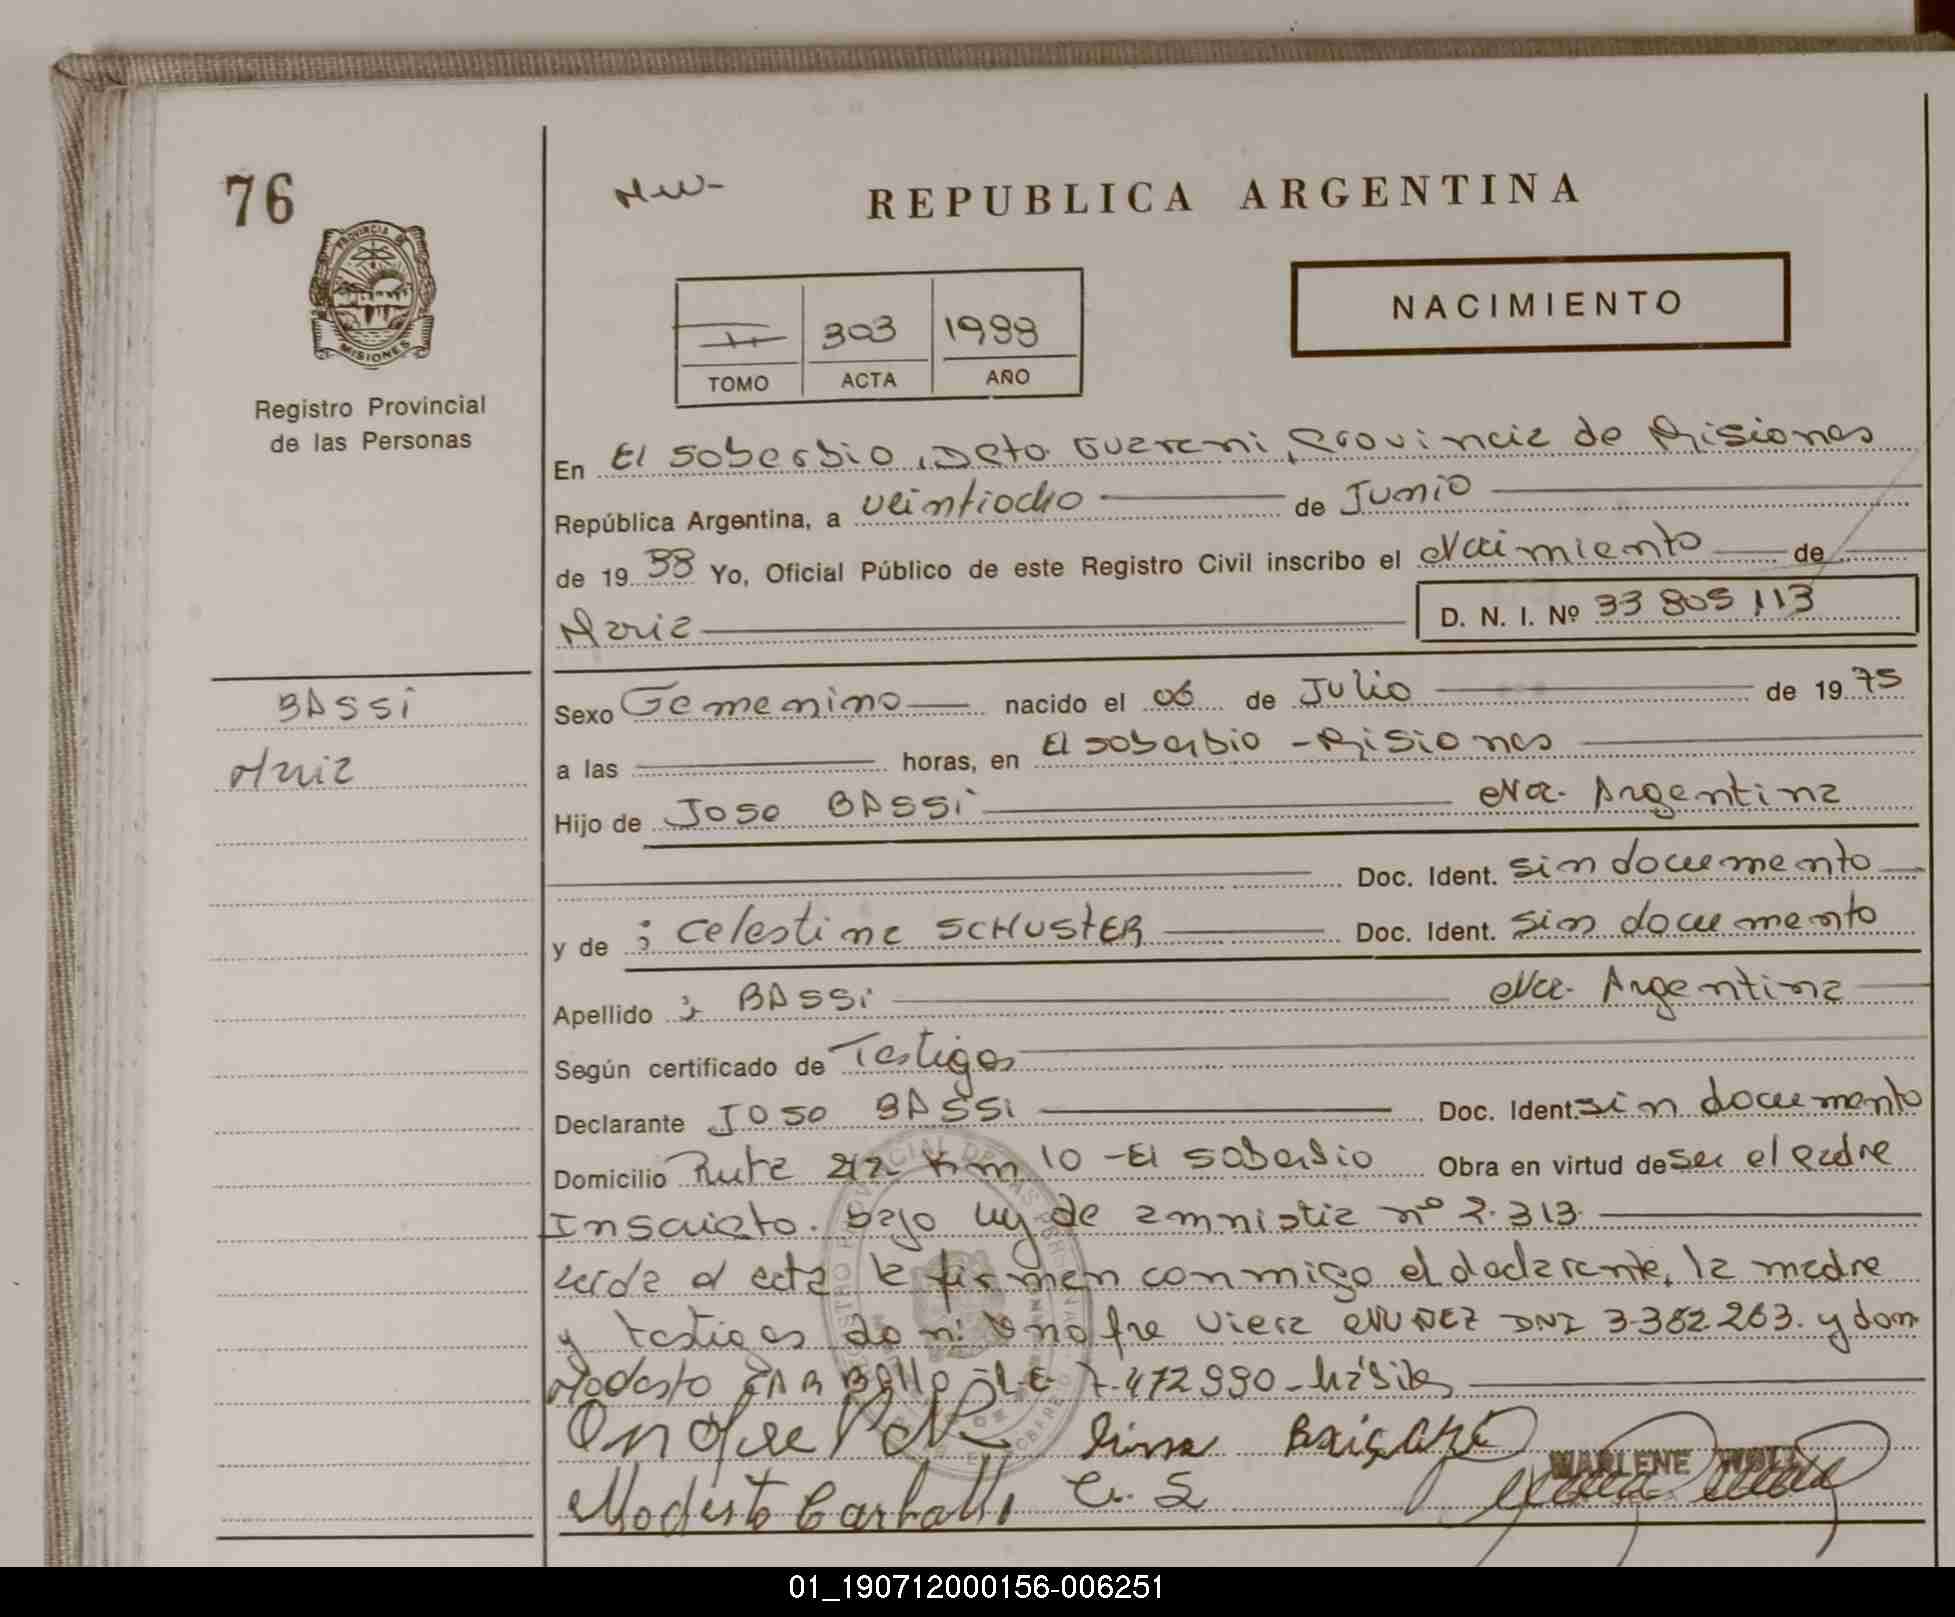 76
REPUBLICA ARGENTINA
PROVINCIA DE
MISIONES
Registro Provincial
de las Personas
NACIMIENTO
303 1988
TOMO ACTA AÑO
En El Soberbio, Dcto Guarani, Provincia de Misiones
República Argentina, a veintiocho de Junio
de 19 88 Yo, Oficial Público de este Registro Civil inscribo el Nacimiento de
Maria
D. N. I. Nº 33 805 113
BASSi
Maria
Sexo Femenino nacido el 06 de Julio de 19 75
a las horas, en El Soberbio - Misiones
Hijo de Jose BASSi Na. Argentina
Doc. Ident. Sin documento
y de : Celestina SCHUSTER Doc. Ident. Sin documento
Apellido : BASSi Na. Argentina
Según certificado de Testigos
Declarante Jose BASSi Doc. Ident. Sin documento
Domicilio Ruta 212 Km 10 - El Soberbio Obra en virtud de Ser el padre
Inscripto. bajo ley de amnistia nº 2.313
Leida el acta la firman conmigo el declarante, la madre
y testigos don: Onofre Viera NUÑEZ DNI 3.382.263. y don
Modesto CARBallo - L.E. 7.472.990 - hábiles
Onofre
Modesto Carballo C. S
MARLENE
01_190712000156-006251